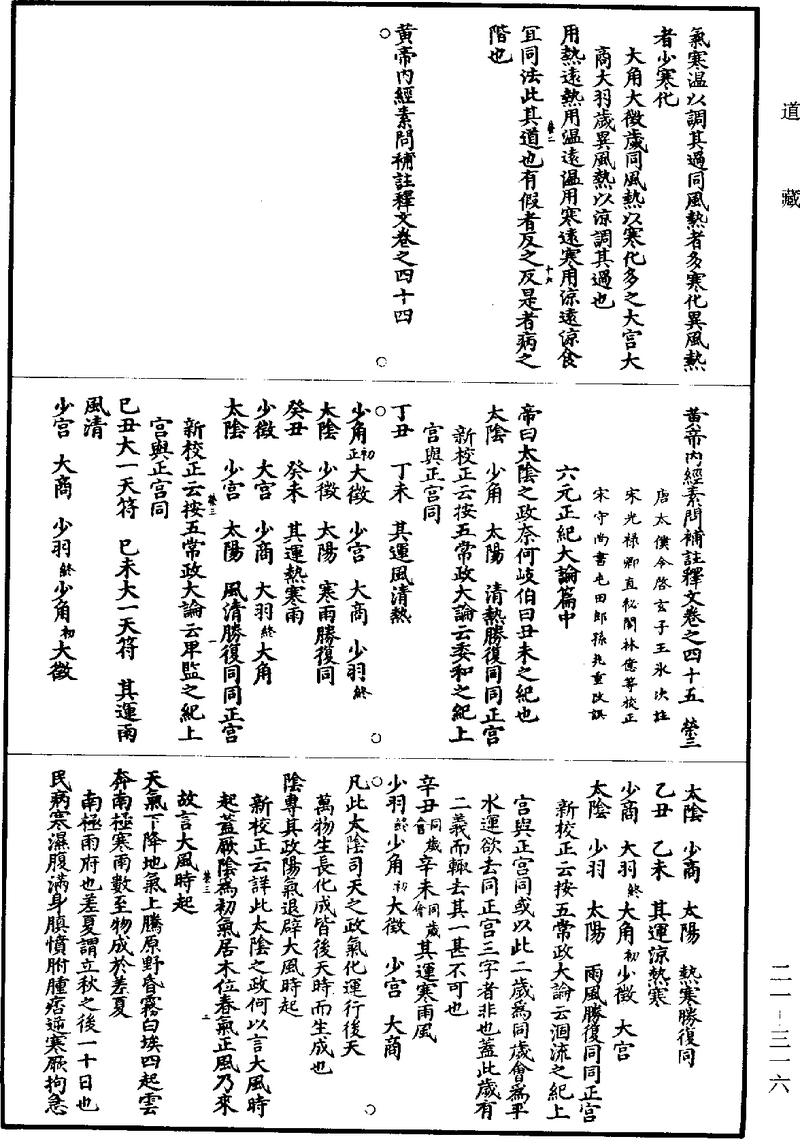 道藏
氣寒温以調其過同風熱者多寒化異風熱
者少寒化
大角大徵歲同風熱以寒化多之大宮大
商大羽歲異風熱以涼調其過也
用熱遠熱用温遠温用寒遠寒用涼遠涼食
宜同法此其道也有假者反之反是者病之
階也
黃帝內經素問補註釋文卷之四十四
黃帝內經素問補註釋文卷之四十五
唐太僕令啓玄子王氷次註
宋光祿卿直秘閣林億等校正
宋守尚書屯田郎孫兆重改誤
六元正紀大論篇中
帝曰太陰之政奈何岐伯曰丑未之紀也
太陰 少角 太陽 清熱勝復同同正宮
新校正云按五常政大論云委和之紀上
宮與正宮同
丁丑 丁未 其運風清熱
少角初正大徵 少宮 大商 少羽終
太陰 少徵 太陽 寒雨勝復同
癸丑 癸未 其運熱寒雨
少徵 大宮 少商 大羽終大角
太陰 少宮 太陽 風清勝復同同正宮
新校正云按五常政大論云卑監之紀上
宮與正宮同
己丑大一天符 己未大一天符 其運雨
風清
少宮 大商 少羽終少角初大徵
太陰 少商 太陽 熱寒勝復同
乙丑 乙未 其運涼熱寒
少商 大羽終大角初少徵 大宮
太陰 少羽 太陽 雨風勝復同同正宮
新校正云按五常政大論云涸流之紀上
宮與正宮同或以此二歲爲同歲會爲平
水運欲去同正宮三字者非也蓋此歲有
二義而輒去其一甚不可也
辛丑同歲會辛未同歲會其運寒雨風
少羽終少角初大徵 少宮 大商
凡此太陰司天之政氣化運行後天
萬物生長化成皆後天時而生成也
陰專其政陽氣退辟大風時起
新校正云詳此太陰之政何以言大風時
起蓋厥陰爲初氣居木位春氣正風乃來
故言大風時起
天氣下降地氣上騰原野昏霧白埃四起雲
奔南極寒雨數至物成於差夏
南極雨府也差夏謂立秋之後一十日也
民病寒濕腹滿身䐜憤胕腫痞逆寒厥拘急
二一-三一六